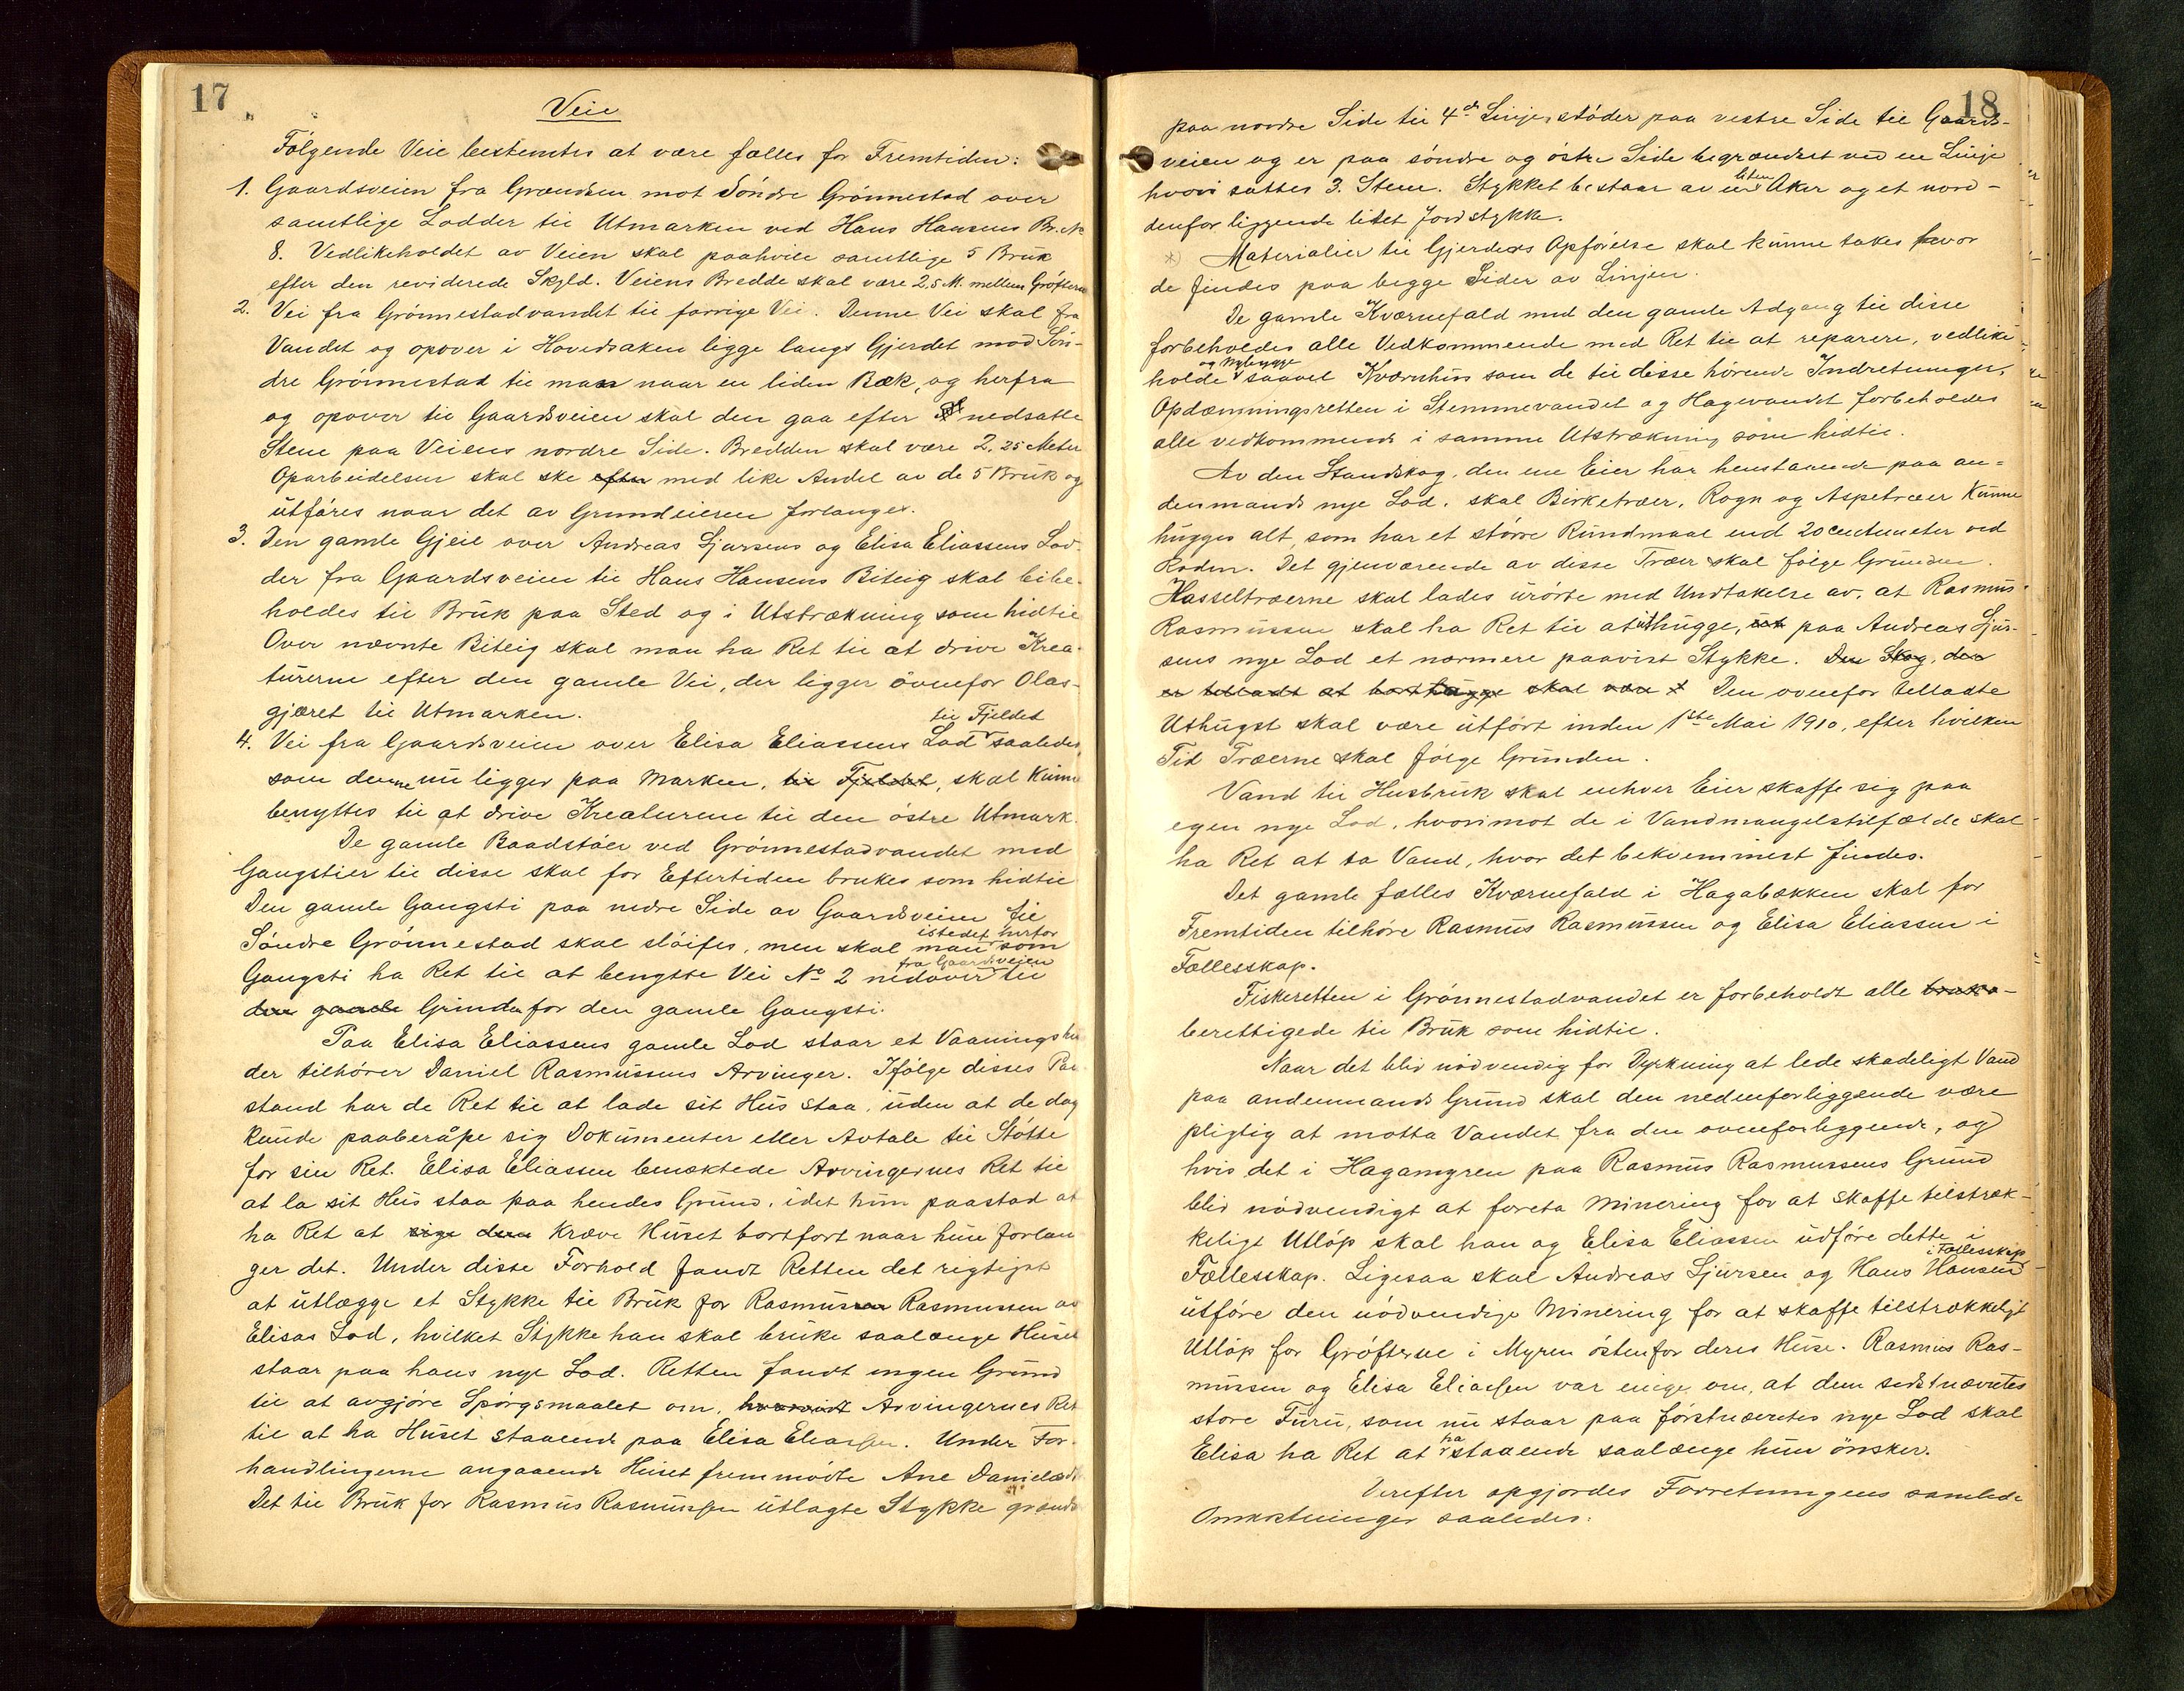 17
Veie
Følgende Veie bestemtes at være fælles for Fremtiden:
1. Gaardsveien fra Grændsen mot Søndre Grønnestad over
samtlige Lodder til Utmarken ved Hans Hansens Br. No
8. Vedlikeholdet av Veien skal paahvile samtlige 5 Bruk
efter den reviderede Skyld. Veiens Bredde skal være 2,5 M. mellem Grøfterne
2. Vei fra Grønnestadvandet til forrige Vei. Denne Vei skal fra
Vandet og opover i Hovedsaken ligge langs Gjerdet mod Søn-
dre Grønnestad til man naar en liden Bæk, og herfra
og opover til Gaardsveien skal den gaa efter nedsatte
Stene paa Veiens nordre Side. Bredden skal være 2,25 Meter
Oparbeidelsen skal ske efter med like Andel av de 5 Bruk og
utføres naar det av Grundeieren forlanges.
3. Den gamle Gjeil over Andreas Sjursens og Elisa Eliassens Lod-
der fra Gaardsveien til Hans Hansens Biteig skal bibe-
holdes til Bruk paa Sted og i Utstrækning som hidtil
Over nævnte Biteig skal man ha Ret til at drive Krea-
turerne efter den gamle Vei, der ligger ovenfor Olas-
gjæret til Utmarken.
til Fjeldet
4. Vei fra Gaardsveien over Elisa Eliassens Lod saaledes
som denne nu ligger paa Marken, til Fjeldet, skal kunne
benyttes til at drive Kreaturene til den østre Utmark.
De gamle Baadstøer ved Grønnestadvandet med
Gangstier til disse skal for Eftertiden brukes som hidtil
Den gamle Gangsti paa nedre Side av Gaardsveien til
istedet herfor
Søndre Grønnestad skal sløifes, men skal man som
fra Gaardsveien
Gangsti ha Ret til at benytte Vei No 2 nedover til
den gamle Grinda for den gamle Gangsti.
Paa Elisa Eliassens gamle Lod staar et Vaaningshu
der tilhører Daniel Rasmussens Arvinger. Ifølge disses Paa
stand har de Ret til at lade sit Hus staa, uden at de dog
kunde paaberåpe sig Dokumenter eller Avtale til Støtte
for sin Ret. Elisa Eliassen benæktede Arvingernes Ret til
at la sit Hus staa paa hendes Grund, idet hun paastod at
ha Ret at sige dem kræve Huset bortført naar hun forlan
ger det. Under disse Forhold fandt Retten det rigtigst
at utlægge et Stykke til Bruk for Rasmus Rasmussen av
Elisas Lod, hvilket Stykke han skal bruke saalænge Huset
staar paa hans nye Lod. Retten fandt ingen Grund
til at avgjøre Spørgsmaalet om, hvorvidt Arvingernes Ret
til at ha Huset staaende paa Elisa Eliassen. Under For-
handlingerne angaaende Huset fremmødte Ane Danielsdt
Det til Bruk for Rasmus Rasmussen utlagte Stykke grænds
18
paa nordre Side til 4de Linje, støder paa vestre Side til Gaards-
veien og er paa søndre og østre Side begrændset ved en Linje
liten
hvori sattes 3. Stene. Stykket bestaar av en Aker og et nord-
denfor liggende litet Jordstykke.
x) Materialier til Gjerdes Opførelse skal kunne takes hvor
de findes paa begge Sider av Linjen.
De gamle Kværnefald med den gamle Adgang til disse
forbeholdes alle Vedkommende med Ret til at reparere, vedlike-
og nybygge
holde saavel Kværnhus som de til disse hørende Indretninger,
Opdæmningsretten i Stemmevandet og Hagevandet forbeholdes
alle vedkommende i samme Utstrækning som hidtil.
Av den Standskog, den ene Eier har henstaaende paa an-
denmands nye Lod, skal Birketræer, Rogn og Aspetræer kunne
hugges alt, som har et større Rundmaal end 20 centimeter ved
Roden. Det gjenværende av disse Træer skal følge Grunden.
Hasseltræerne skal lades urørte med Undtakelse av, at Rasmus
Rasmussen skal ha Ret til at uthugge, ut paa Andreas Sjur-
sens nye Lod et nærmere paavist Stykke. Den Skog, den
er tilladt at borthugge skal være Den ovenfor tilladte
Uthugst skal være utført inden 1ste Mai 1910, efter hvilken
Tid Træerne skal følge Grunden.
Vand til Husbruk skal enhver Eier skaffe sig paa
egen nye Lod, hvorimot de i Vandmangelstilfælde skal
ha Ret at ta Vand, hvor det bekvemmest findes.
Det gamle fælles Kværnefald i Hagabækken skal for
Fremtiden tilhøre Rasmus Rasmussen og Elisa Eliassen i
Fællesskap.
Fiskeretten i Grønnestadvandet er forbeholdt alle bruks-
berettigede til Bruk som hidtil.
Naar det bliv nødvendig for Dyrkning at lede skadeligt Vand
paa andenmands Grund skal den nedenforliggende være
pligtig at motta Vandet fra den ovenforliggende, og
hvis det i Hagamyren paa Rasmus Rasmussens Grund
bliv nødvendigt at foreta Minering for at skaffe tilstræk-
keligt Utløp skal han og Elisa Eliassen udføre dette i
i Fællesskap
Fællesskap. Ligesaa skal Andreas Sjursen og Hans Hansen
utføre den nødvendige Minering for at skaffe tilstrækkeligt
Utløp for Grøfterne i Myren østenfor deres Huse. Rasmus Ras-
mussen og Elisa Eliassen var enige om, at den sidstnævntes
store Furu, som nu staar paa førstnævntes nye Lod skal
ha
Elisa ha Ret at staaende saalænge hun ønsker.
Derefter opgjordes Forretningens samlede
Omkostninger saaledes: